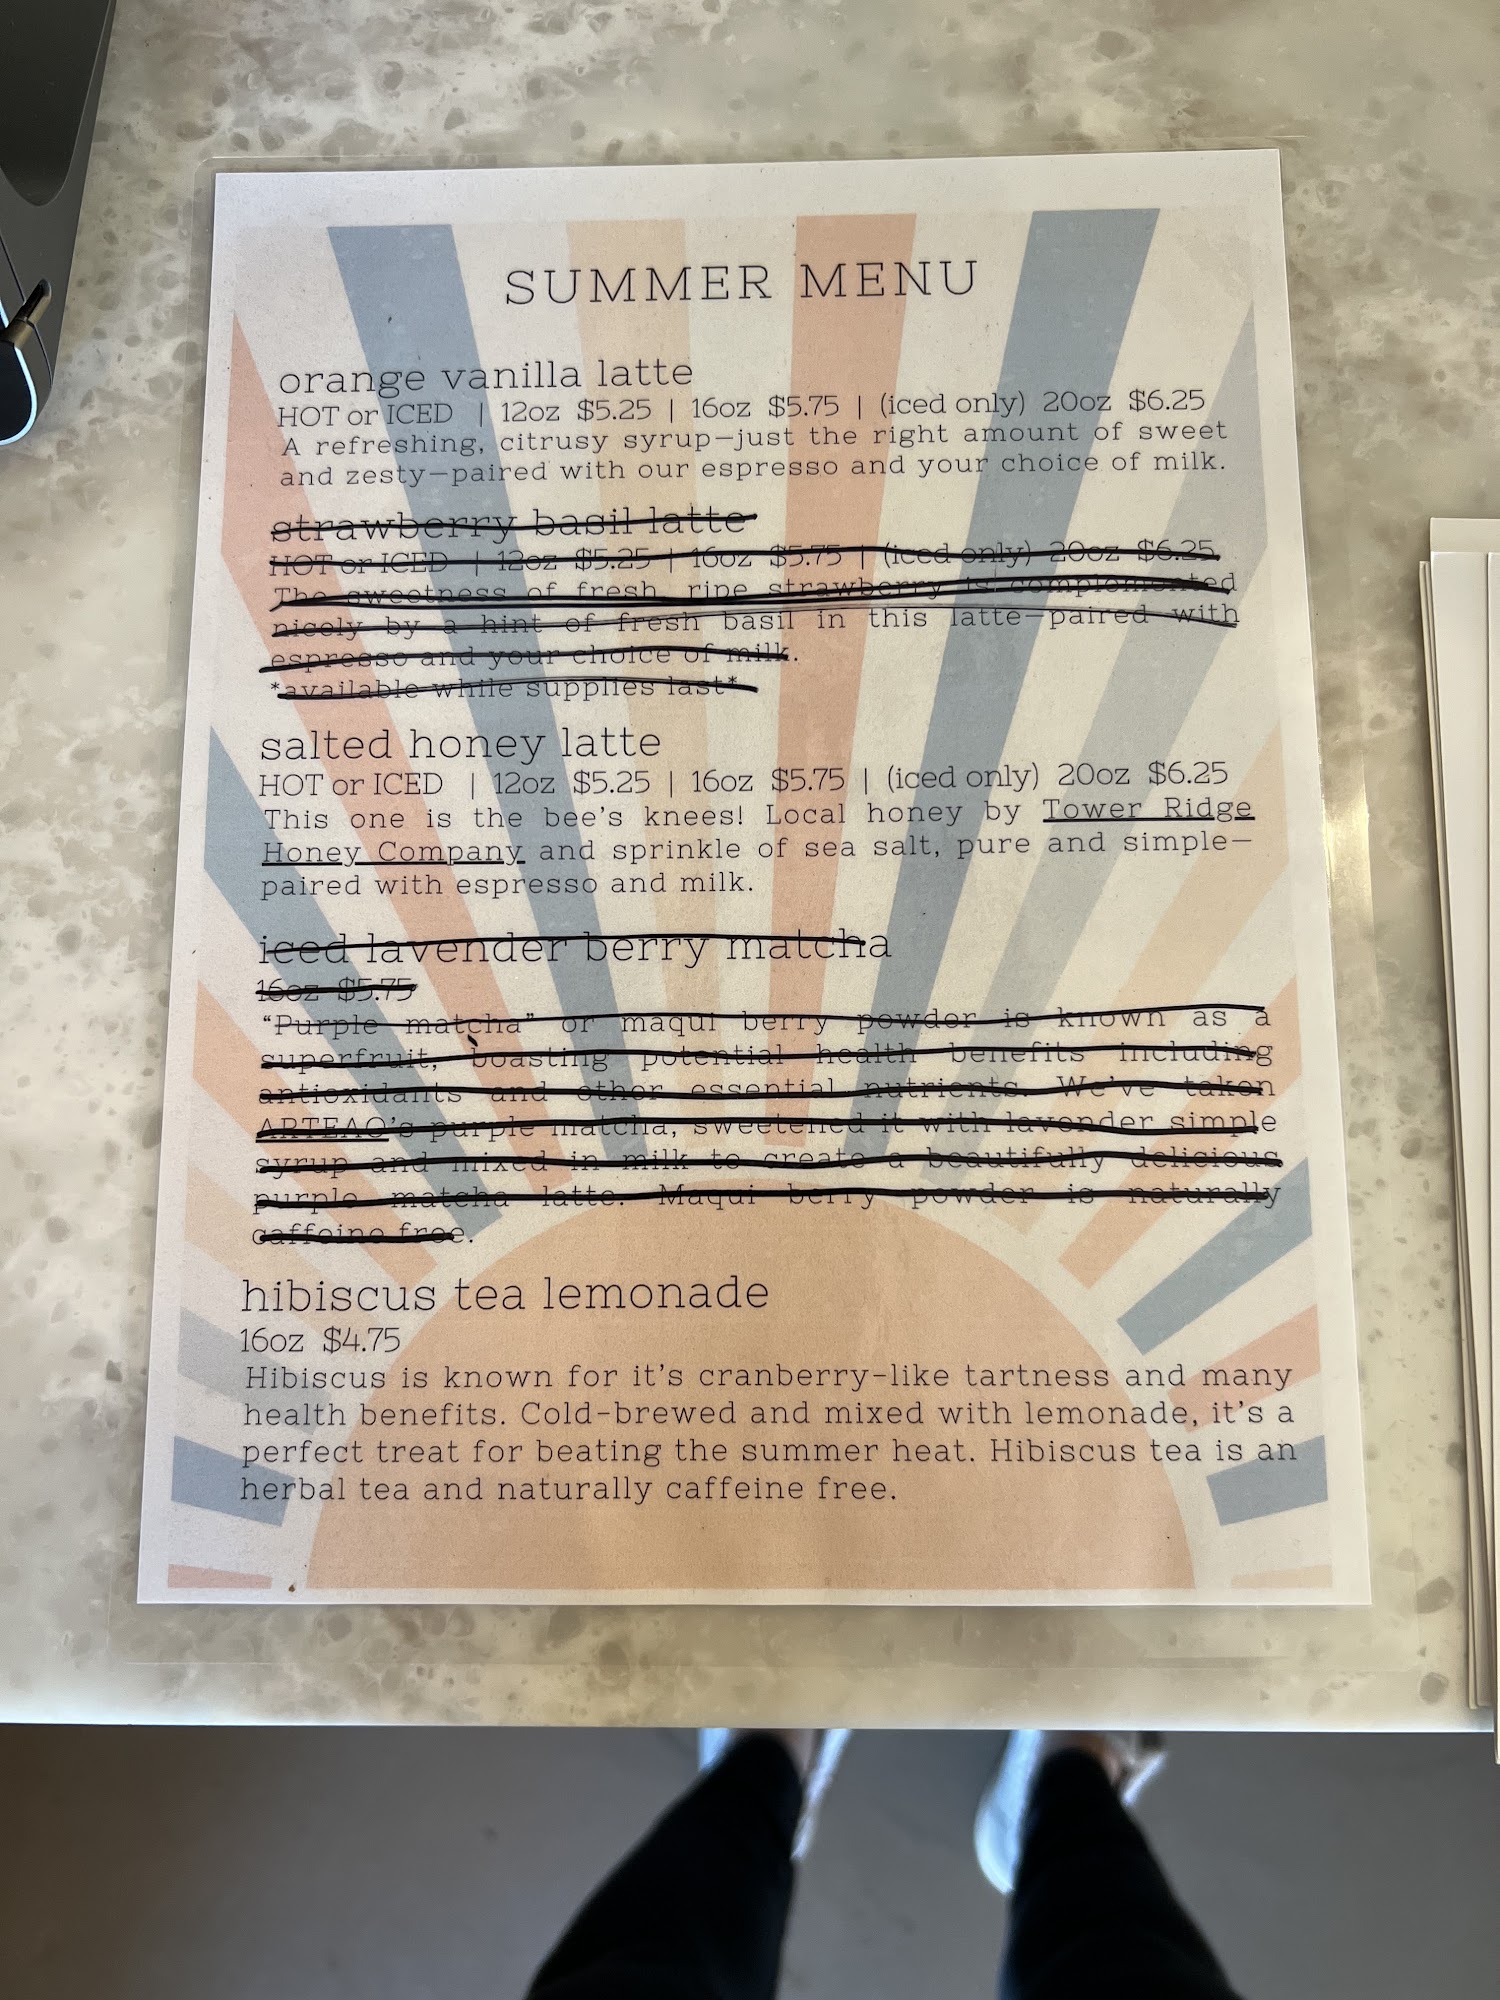 SUMMER MENU
orange vanilla latte
HOT or ICED | 12oz $5.25 | 16oz $5.75 | (iced only) 20oz $6.25
A refreshing, citrusy syrup—just the right amount of sweet
and zesty—paired with our espresso and your choice of milk.
strawberry basil latte
HOT or ICED | 12oz $5.25 | 16oz $5.75 | (iced only) 20oz $6.25
The sweetness of fresh ripe strawberry is complemented
nicely by a hint of fresh basil in this latte—paired with
espresso and your choice of milk.
*available while supplies last*
salted honey latte
HOT or ICED | 12oz $5.25 | 16oz $5.75 | (iced only) 20oz $6.25
This one is the bee's knees! Local honey by Tower Ridge
Honey Company and sprinkle of sea salt, pure and simple—
paired with espresso and milk.
iced lavender berry matcha
16oz $5.75
“Purple matcha” or maqui berry powder is known as a
superfruit, boasting potential health benefits including
antioxidants and other essential nutrients. We've taken
ARTEAO's purple matcha, sweetened it with lavender simple
syrup and mixed in milk to create a beautifully delicious
purple matcha latte. Maqui berry powder is naturally
caffeine free.
hibiscus tea lemonade
16oz $4.75
Hibiscus is known for it's cranberry-like tartness and many
health benefits. Cold-brewed and mixed with lemonade, it's a
perfect treat for beating the summer heat. Hibiscus tea is an
herbal tea and naturally caffeine free.